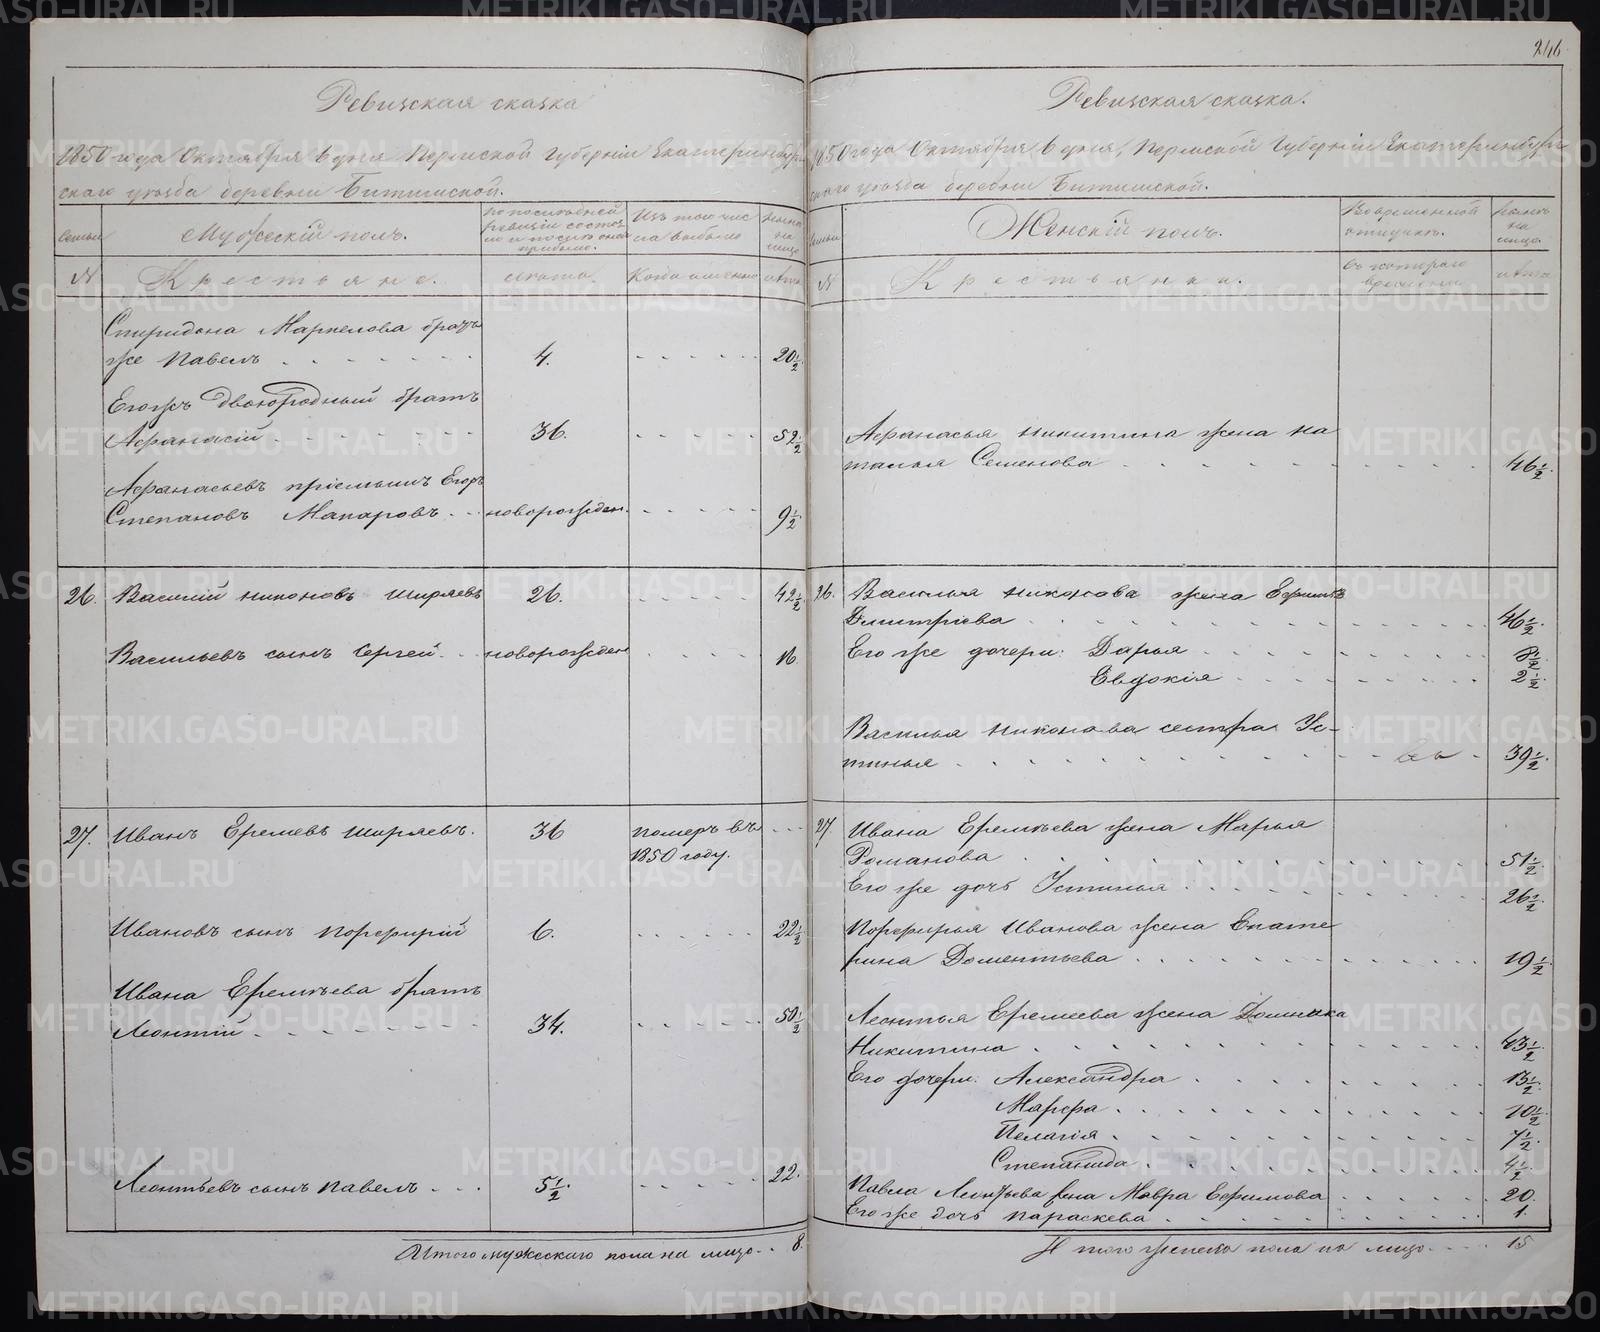 246
Ревизская сказка
1850 года Октября 6 дня Пермской Губерніи Екатеринбург-
скаго уѣзда деревни Битимской.
Семьи
Мужескій полъ.
По последней
ревизіи состоя-
ло и после оной
прибыло.
Изъ того чис
ла выбыло
Нынѣ
на
лицо
N
Крестьяне.
лѣта.
Когда именно
лѣта
Спиридона Маркелова братъ
же Павелъ 4. 20½
Егожъ двоюродный братъ
Афанасій 36. 52½
Афанасьевъ пріемышъ Егоръ
Степановъ Макаровъ новорожден. 9½
26. Василій Никоновъ Ширяевъ 26. 42½
Васильевъ сынъ Сергей новорожден 16
27. Иванъ Еремеевъ Ширяевъ. 36 померъ въ
1850 году.
Ивановъ сынъ Порфирій 6. 22½
Ивана Еремѣева братъ
Леонтій 34. 50½
Леонтьевъ сынъ Павелъ 5½ 22.
Итого мужескаго пола на лицо 8.
Ревизская сказка.
1850 года Октября 6 дня, Пермской Губерніи Екатеринбург-
скаго уѣзда деревни Битимской.
Семьи
Женскій полъ.
Во временной
отлучкѣ.
нынѣ
на
лицо
N
Крестьянки.
съ котораго
времени
лѣта
Афанасья Никитина жена На
талья Семенова 46½
26. Василья Никонова жена Ефимья
Дмитріева 46½
Его же дочери: Дарья 8½
Евдокія 2½
Василья Никонова сестра Ус-
тинья 39½
27. Ивана Еремѣева жена Марья
Романова 51½
Его же дочь Устинья 26½
Порфирья Иванова жена Екате
рина Доментьева 19½
Леонтья Еремеева жена Домника
Никитина 43½
Его дочери: Александра 13½
Марфа 10½
Пелагія 7½
Степанида 4½
Павла Леонтьева жена Мавра Ефимова 20.
Его же дочь Параскева 1.
Итого женска пола на лицо 15
METRIKI.GASO-URAL.RU